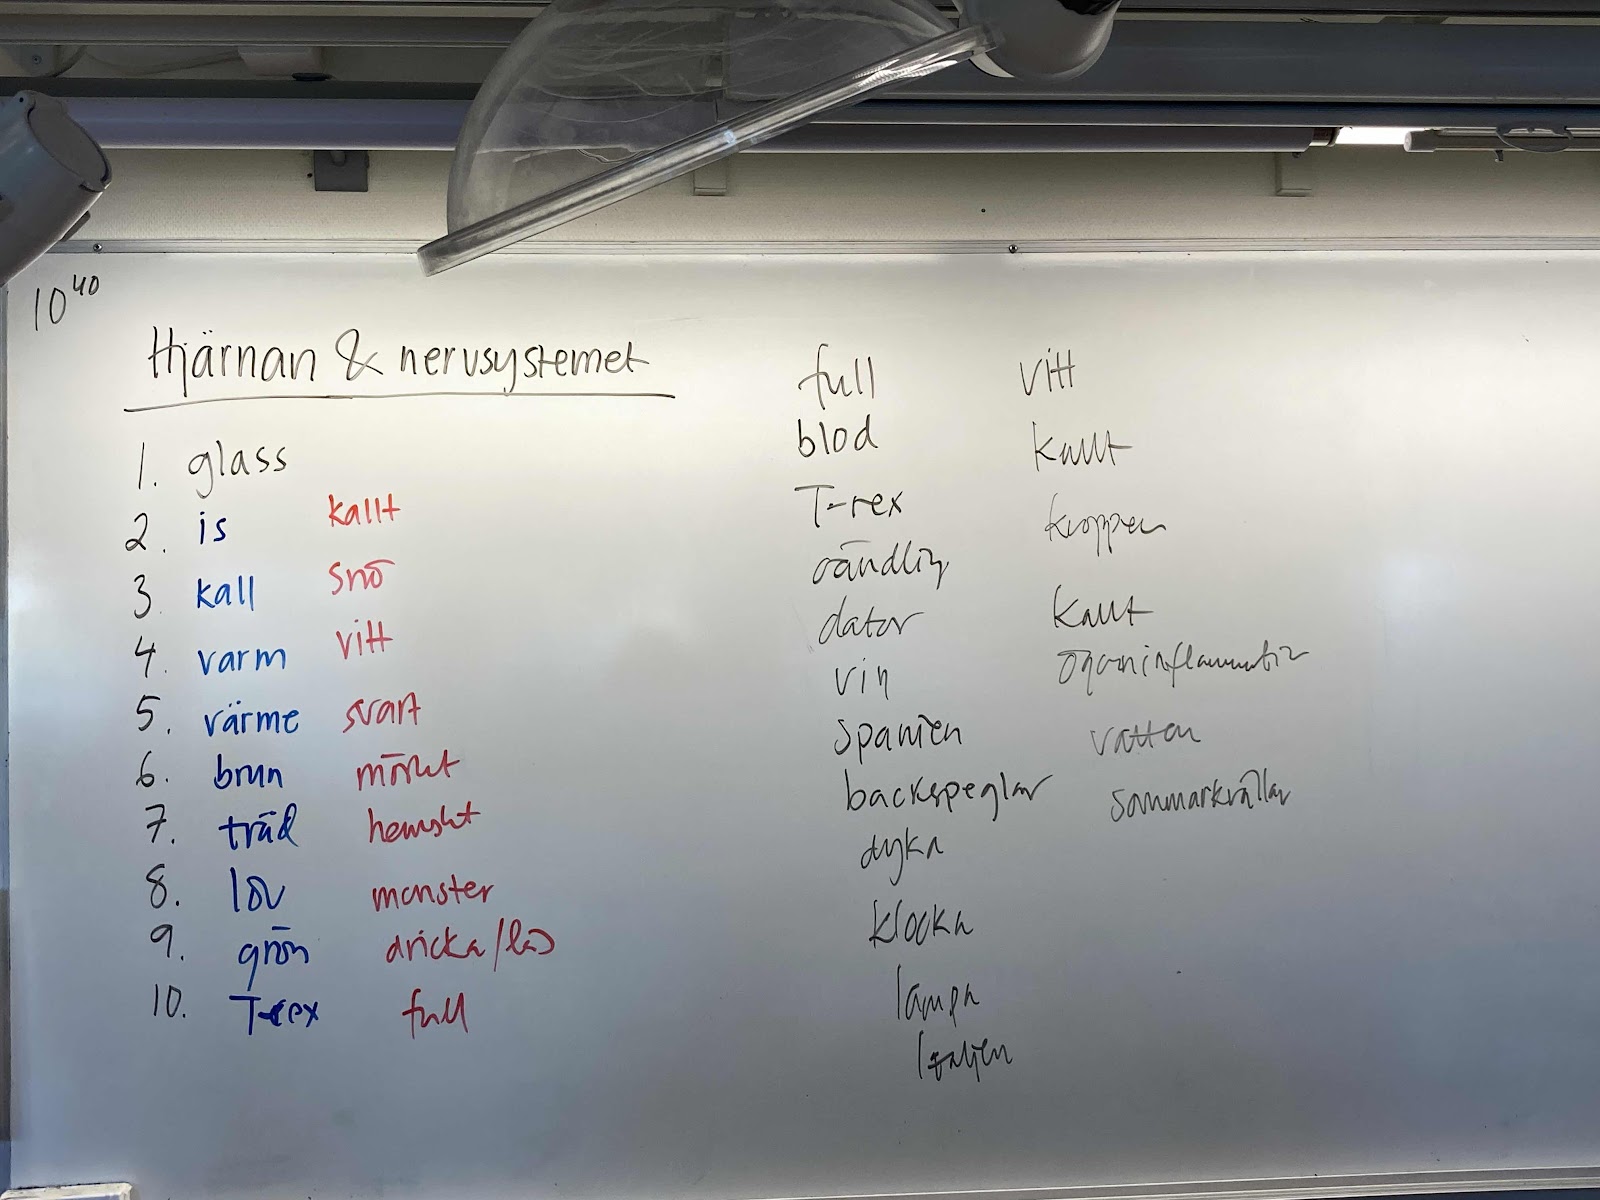 10 40
Hjärnan & nervsystemet
1. glass
2. is kallt
3. kall snö
4. varm vitt
5. värme svart
6. brun mörkt
7. träd hemskt
8. löv monster
9. grön dricka/läs
10. T-rex full
full
blod
T-rex
oändlig
dator
vin
Spanien
backspeglar
dyka
klocka
lampa
Italien
vitt
kallt
kroppen
kallt
ögoninflammation
vatten
sommarkvällar